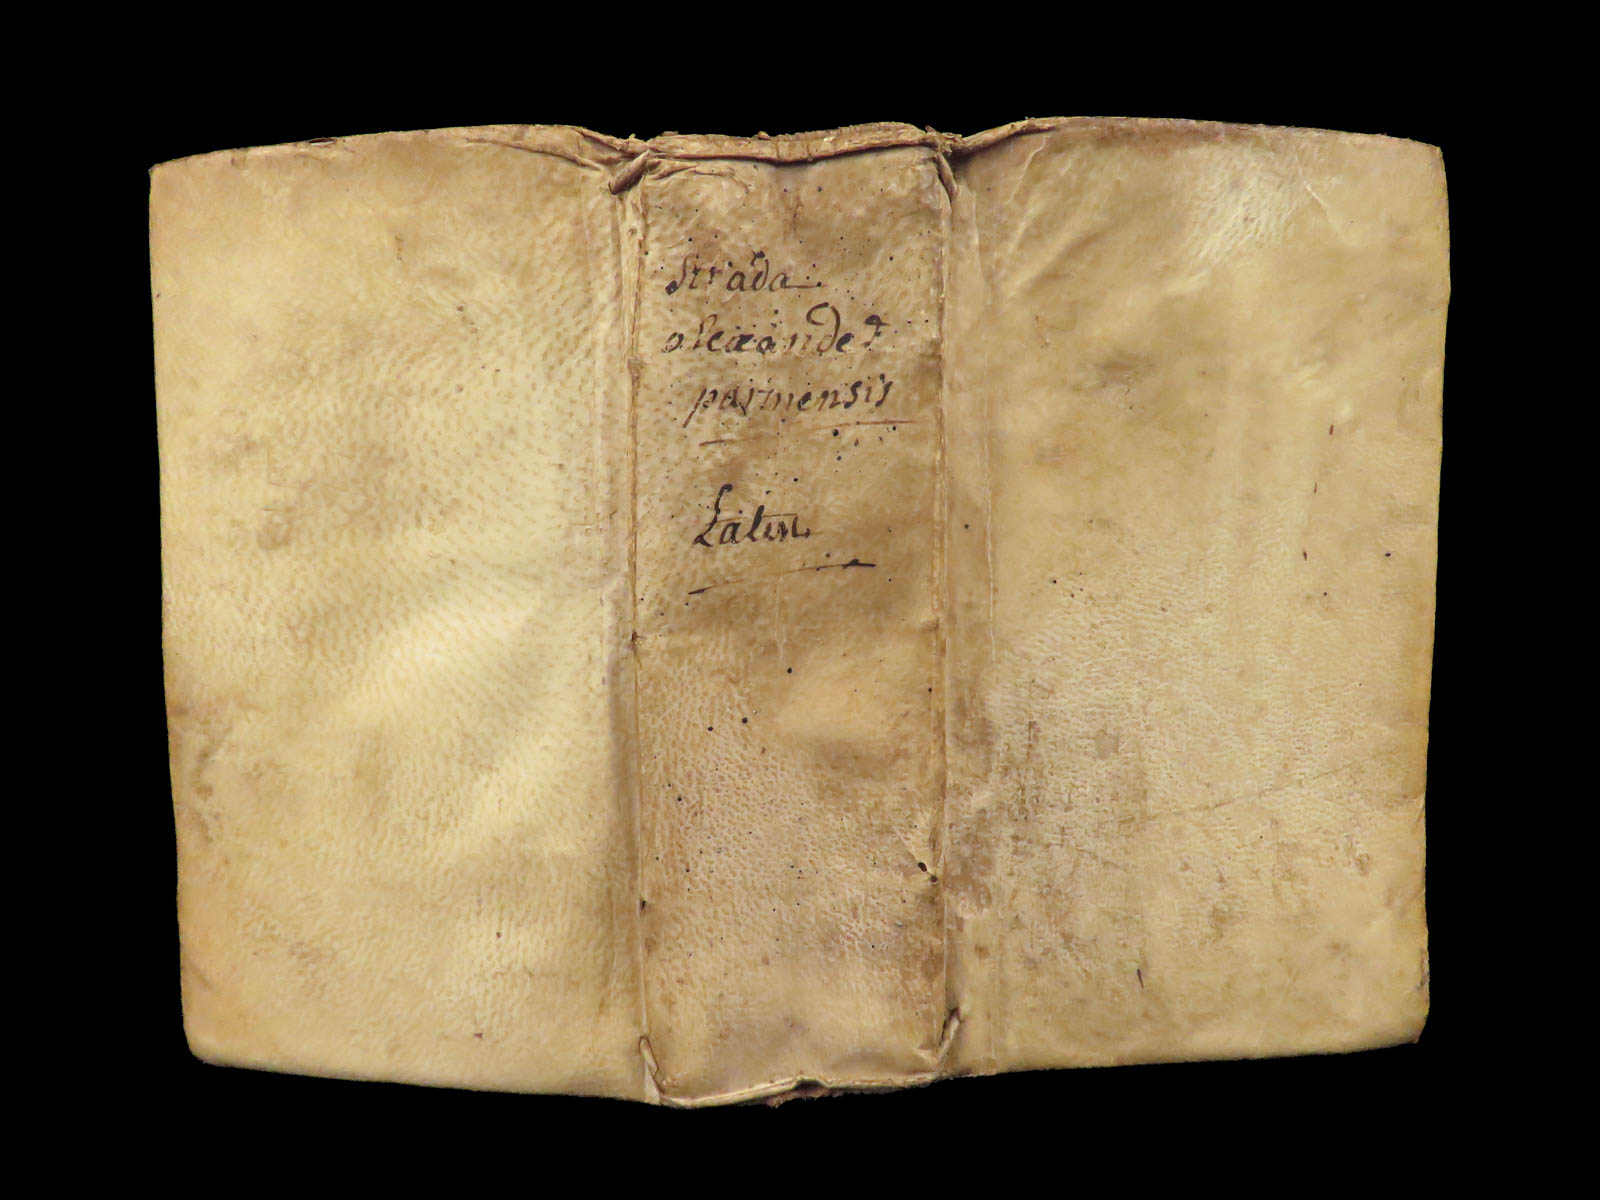 Strada
alexander
parmensis
Latin